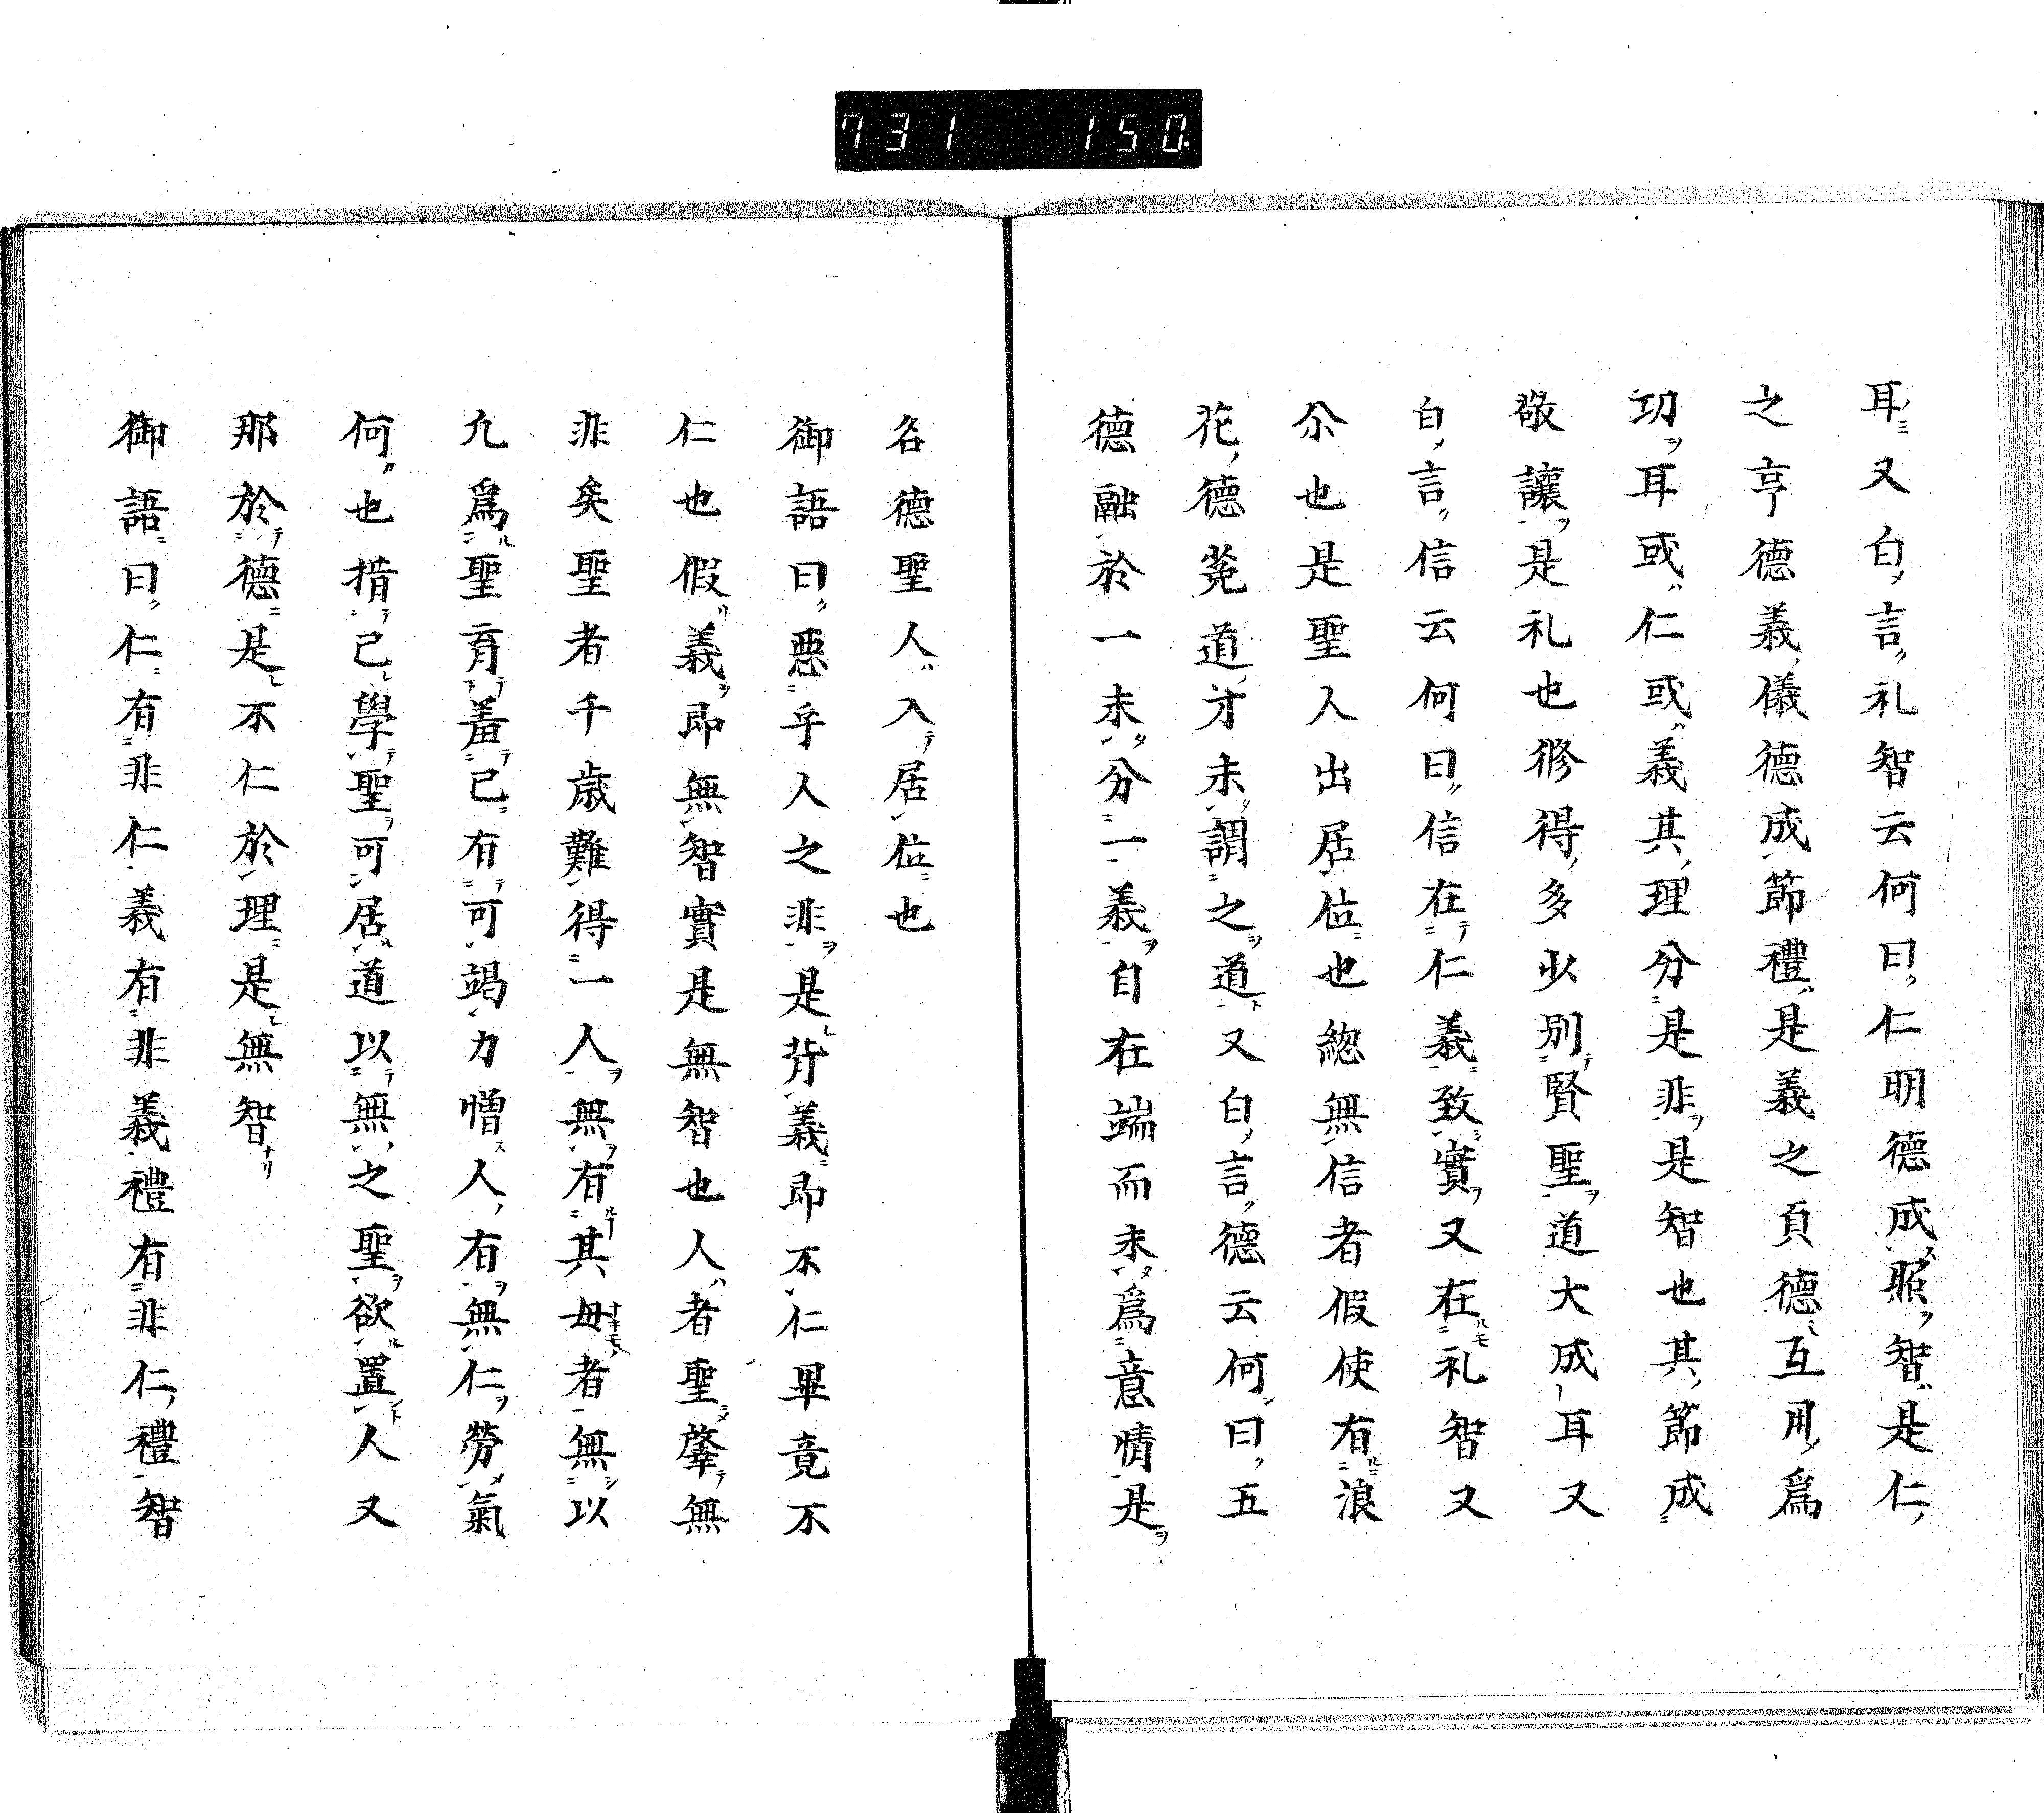 731 150
耳又白言礼智云何曰仁明德成照智是仁
之亨德義儀德成節禮是義之頁德互用爲
功耳或仁或義其理分是非是智也其節成
敬讓是礼也修得多少別賢聖道大成耳又
白言信云何曰信在仁義致實又在礼智又
尒也是聖人出居位也総無信者假使有浪
花德道才未謂之道又白言德云何曰五
德融於一未分一義自在端而未爲意情是
名德聖人入居位也
御語曰惡乎人之非是背義即不仁畢竟不
仁也假義即無智實是無智也人者聖肇無
非矣聖者千歳難得一人無有其毋者無以
允爲聖育羞己有可竭力憎人有無仁勞氣
何也措己學聖可居道以無之聖欲置人又
那於德是不仁於理是無智
御語曰仁有非仁義有非義禮有非仁禮智